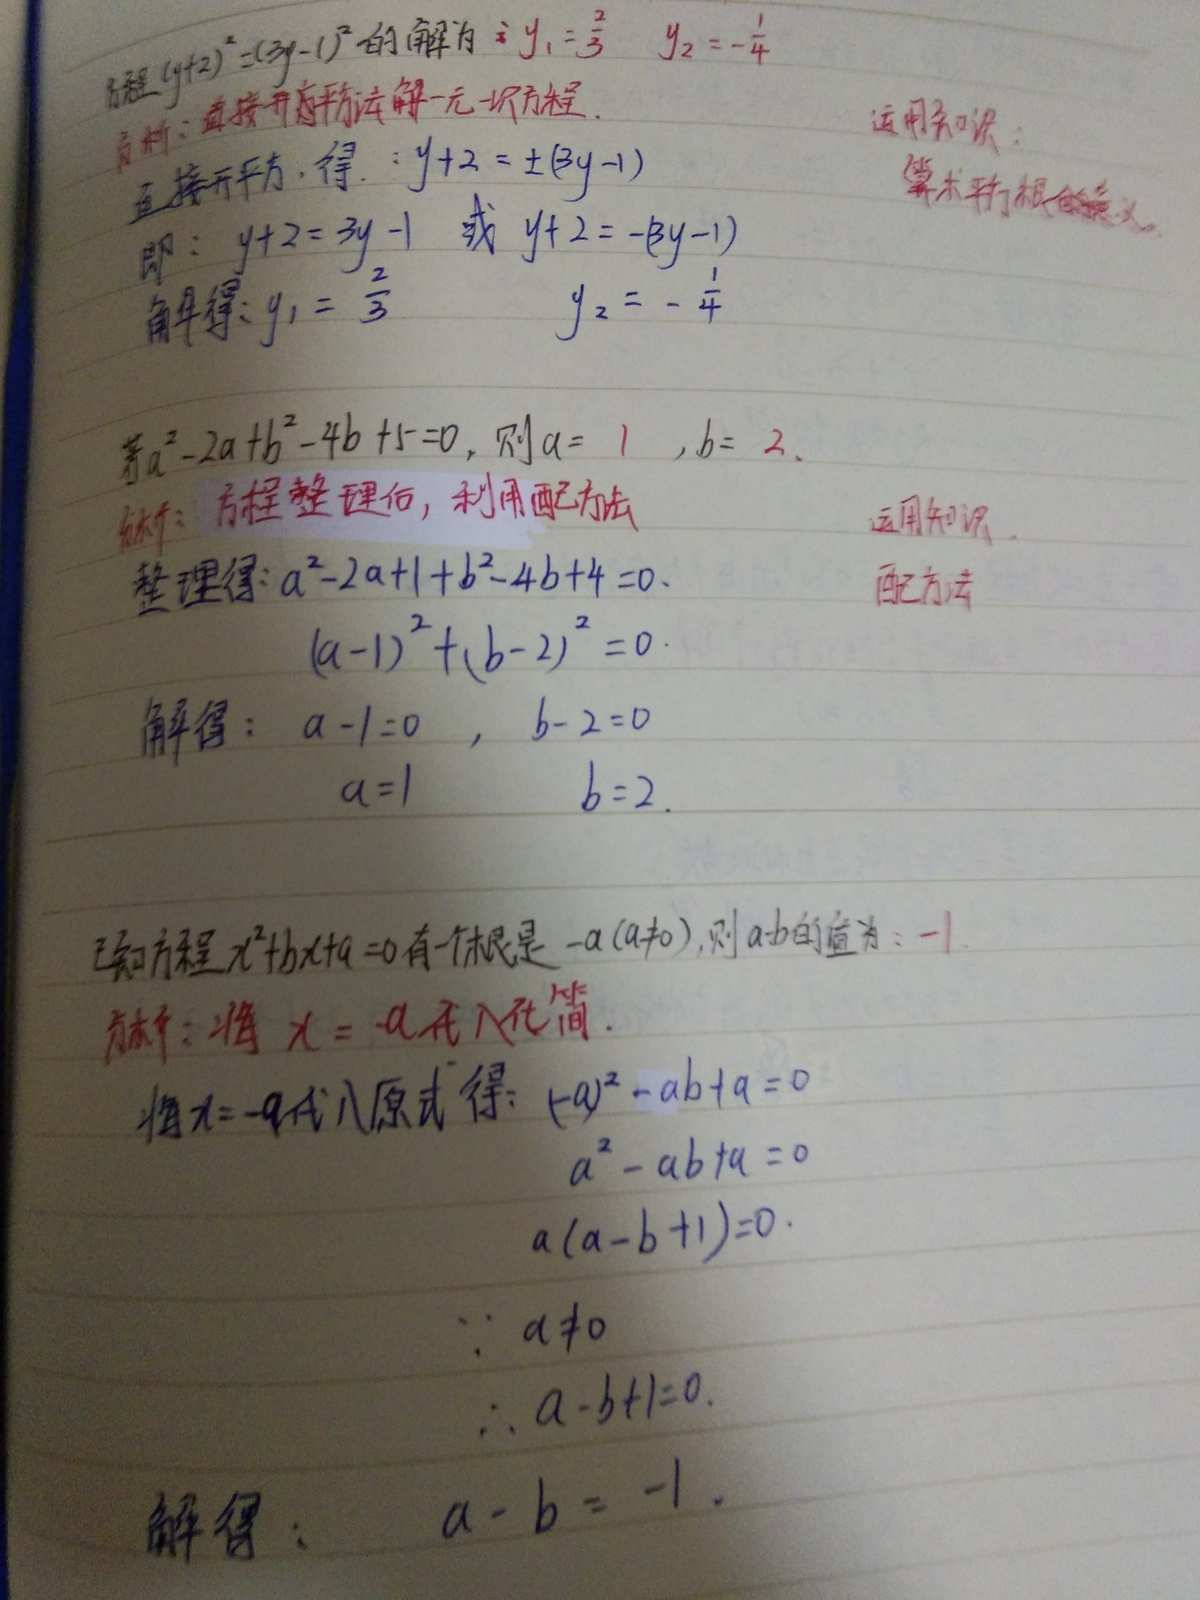 方程(y+2)²=(3y-1)²的解为: y₁=2/3 y₂=-1/4
方析:直接开方平方法解一元一次方程.
运用知识:
直接开平方.得:y+2=±(3y-1)
算术平方根的意义.
即: y+2=3y-1 或 y+2=-(3y-1)
解得:y₁=2/3 y₂=-1/4
若a²-2a+b²-4b+5=0,则a= 1 ,b= 2.
方析:方程整理后,利用配方法
运用知识.
整理得:a²-2a+1+b²-4b+4=0.
配方法
(a-1)²+(b-2)²=0.
解得: a-1=0 , b-2=0
a=1 b=2.
已知方程x²+bx+a=0有一个根是-a(a≠0),则a-b的值为:-1.
方析:将 x=-a代入化简.
将x=-a代入原式得:(-a)²-ab+a=0
a²-ab+a=0
a(a-b+1)=0.
∵ a≠0
∴ a-b+1=0.
解得: a-b=-1.